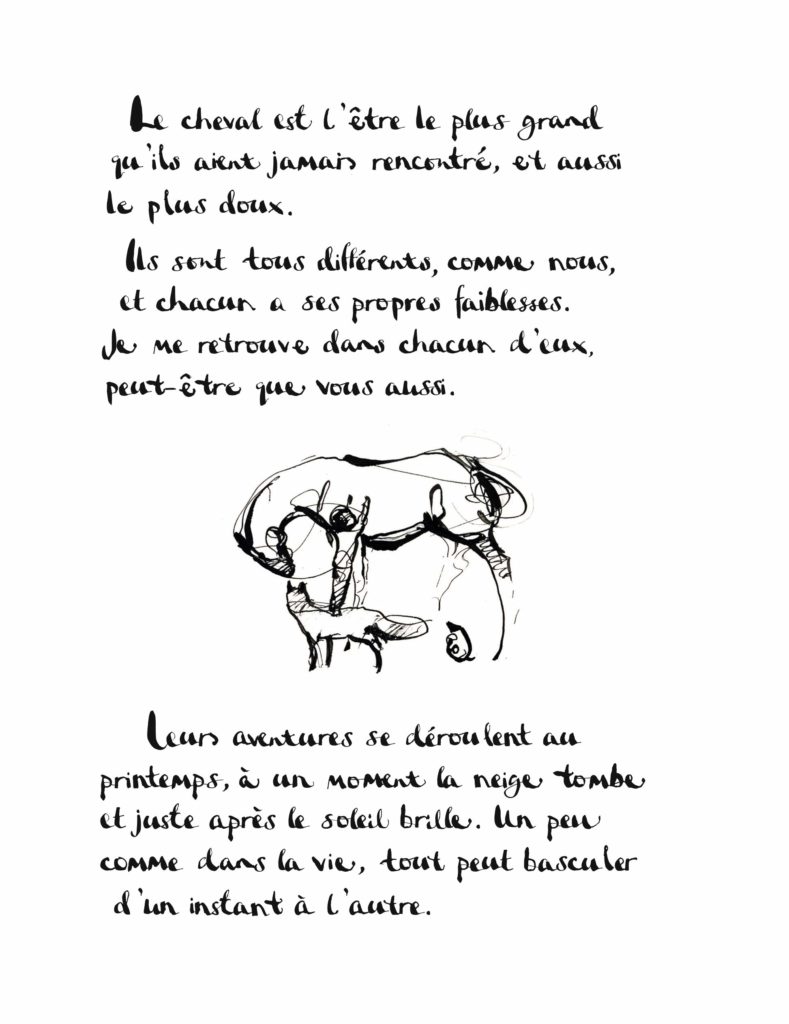 Le cheval est l'être le plus grand
qu'ils aient jamais rencontré, et aussi
le plus doux.
Ils sont tous différents, comme nous,
et chacun a ses propres faiblesses.
Je me retrouve dans chacun d'eux,
peut-être que vous aussi.
Leurs aventures se déroulent au
printemps, à un moment la neige tombe
et juste après le soleil brille. Un peu
comme dans la vie, tout peut basculer
d'un instant à l'autre.